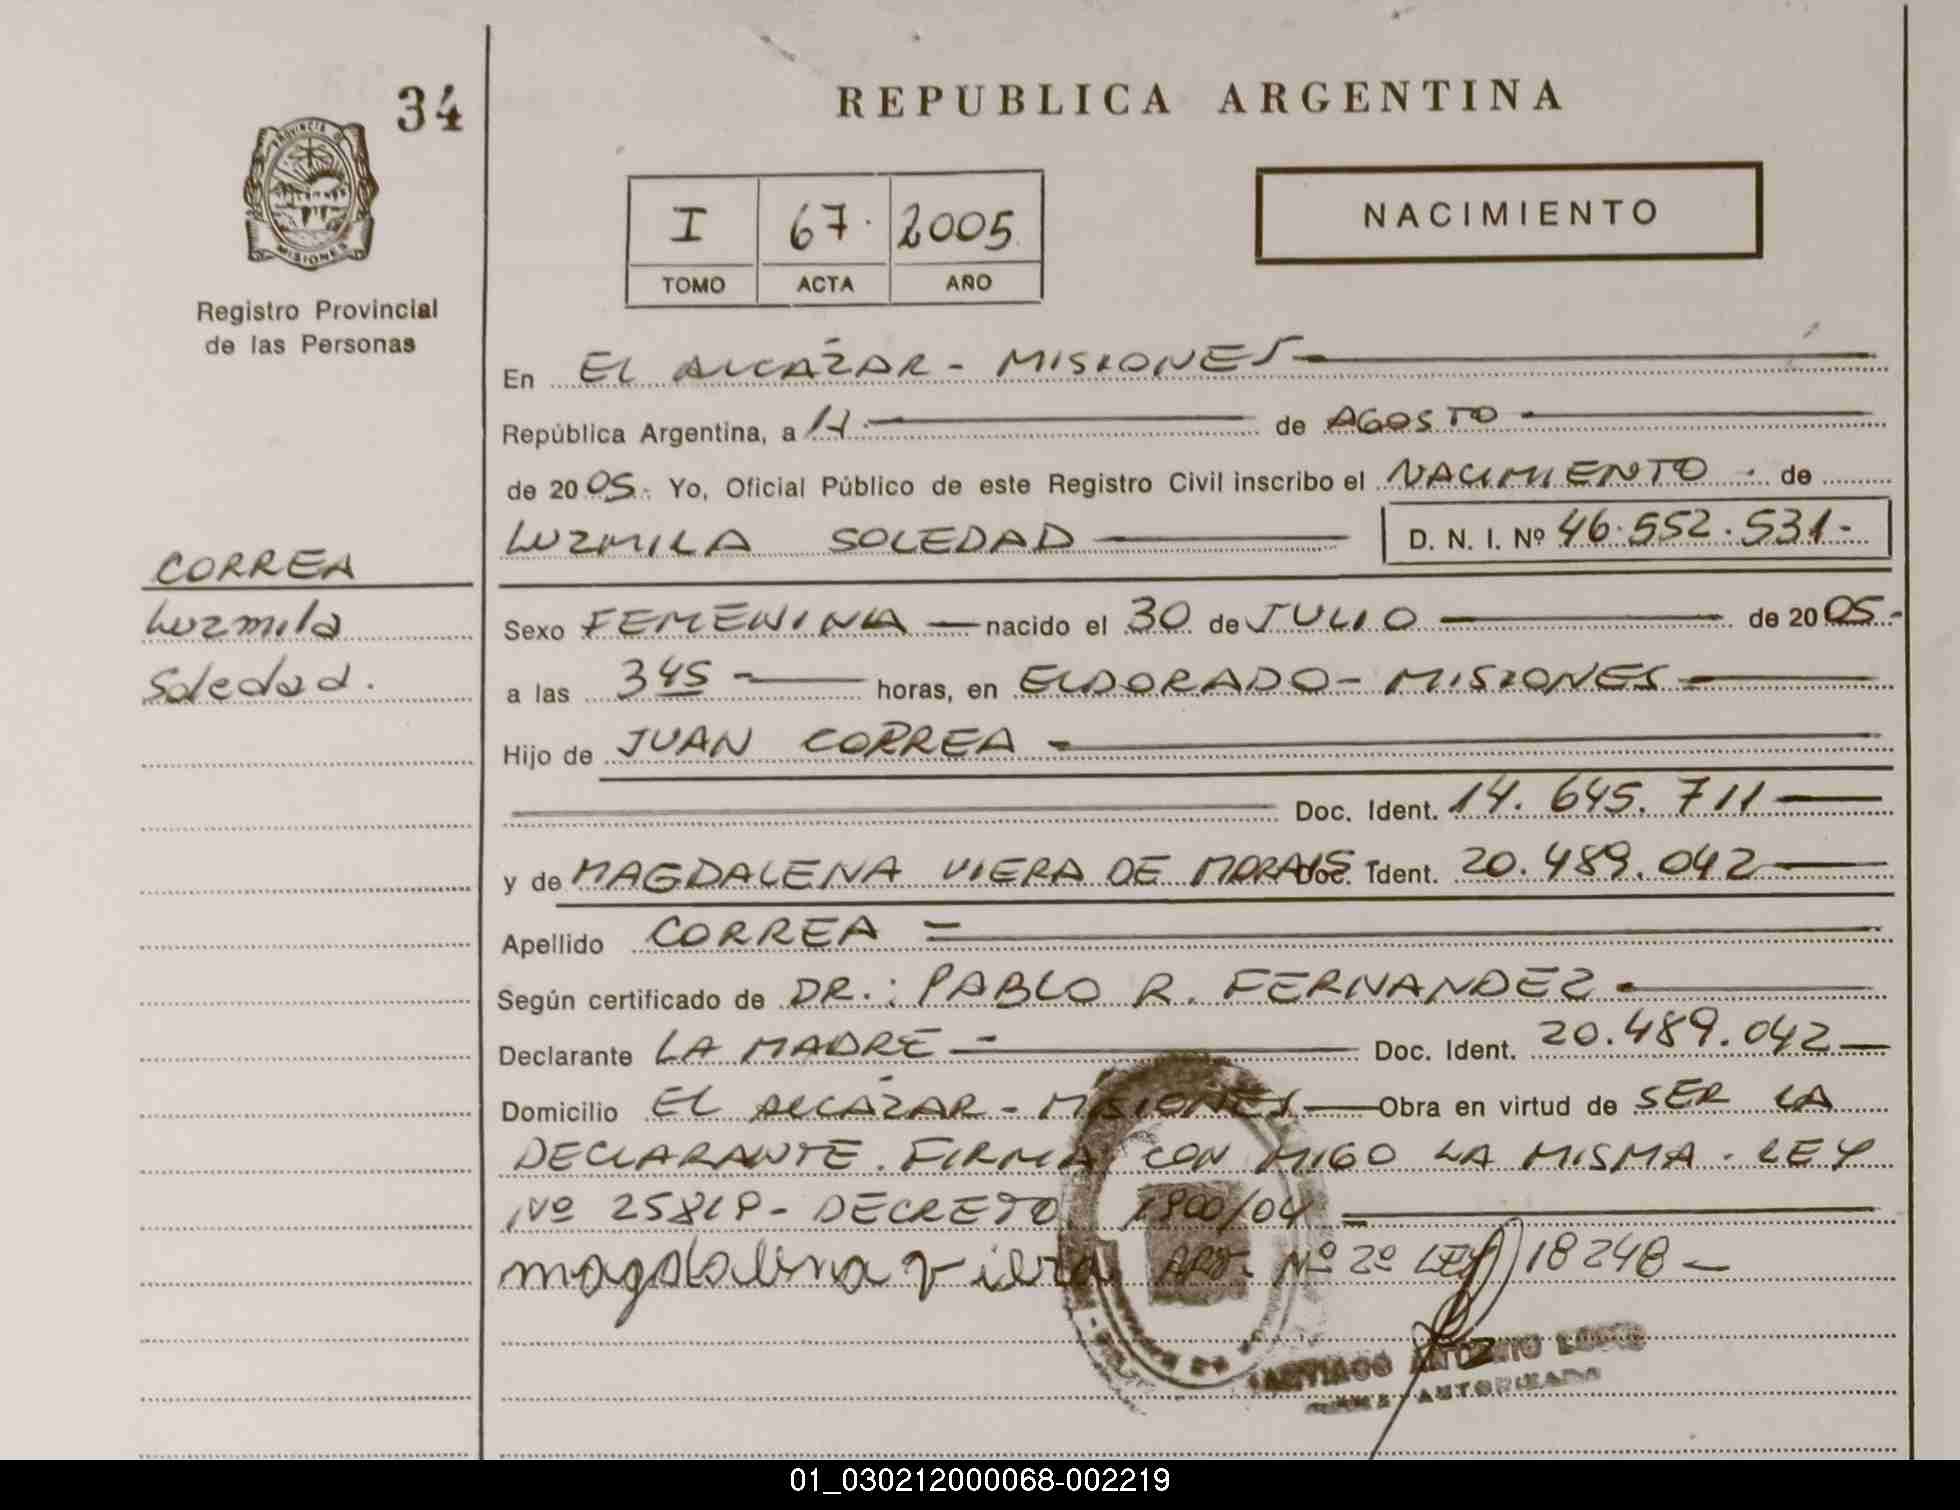 34
REPUBLICA ARGENTINA
PROVINCIA DE
MISIONES
Registro Provincial
de las Personas
I 67. 2005
TOMO ACTA AÑO
NACIMIENTO
En EL ALCÁZAR - MISIONES
República Argentina, a 11 de AGOSTO
de 2005. Yo, Oficial Público de este Registro Civil inscribo el NACIMIENTO . de
LUZMILA SOLEDAD D. N. I. Nº 46.552.531.-
CORREA
Luzmila
Soledad.
Sexo FEMENINA nacido el 30 de JULIO de 2005.-
a las 3 45 horas, en ELDORADO - MISIONES
Hijo de JUAN CORREA
Doc. Ident. 14.645.711
y de MAGDALENA VIERA DE MORAIS Doc. Ident. 20.489.042
Apellido CORREA
Según certificado de DR.: PABLO R. FERNANDEZ
Declarante LA MADRE Doc. Ident. 20.489.042
Domicilio EL ALCÁZAR - MISIONES Obra en virtud de SER LA
DECLARANTE. FIRMA CON MIGO LA MISMA. LEY
Nº 25819 - DECRETO 1900/04
magdalena viera ART. Nº 2º LEY 18248
SANTIAGO ANTONIO
AUTORIZADO
01_030212000068-002219